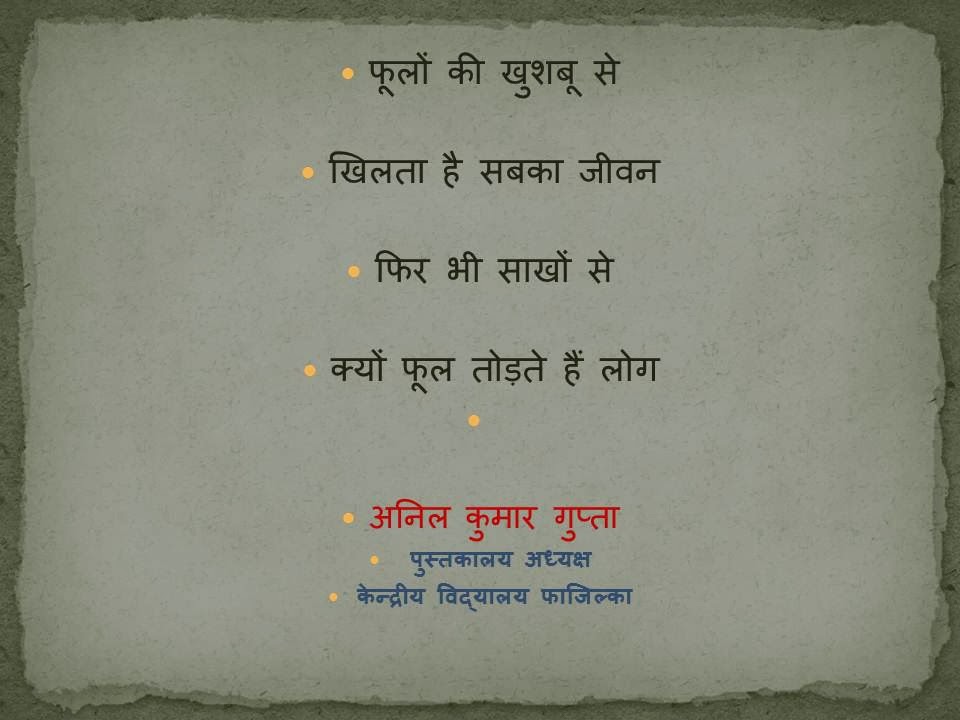 • फूलों की खुशबू से
• खिलता है सबका जीवन
• फिर भी साखों से
• क्यों फूल तोड़ते हैं लोग
•
• अनिल कुमार गुप्ता
• पुस्तकालय अध्यक्ष
• केन्द्रीय विद्यालय फाजिल्का